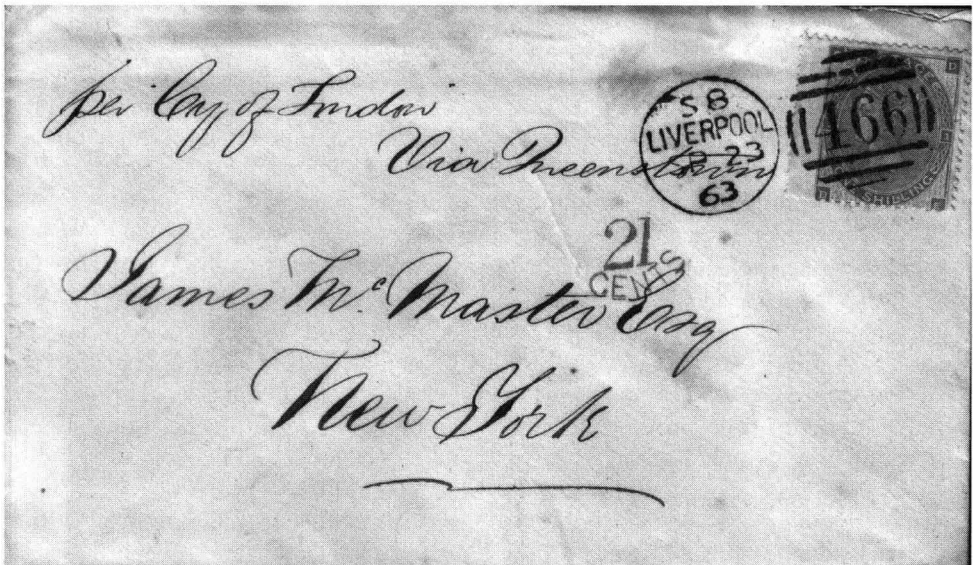 per City of London
Via Queenstown
S 8
LIVERPOOL
23
63
466
SHILLING
21
CENTS
James Mc Master Esq
New York